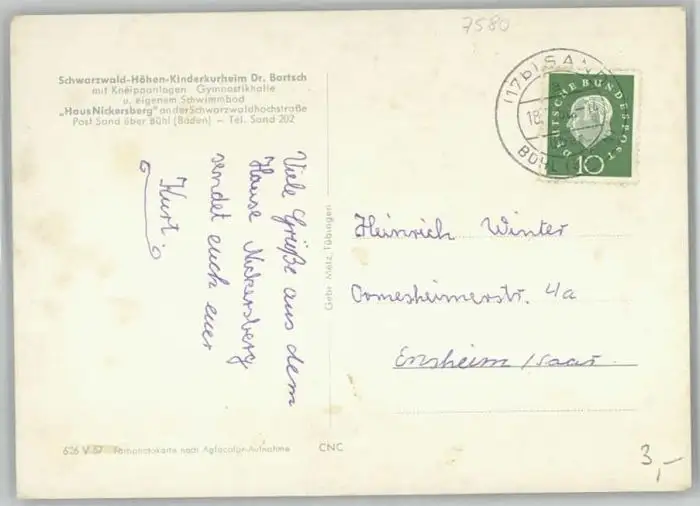 7580
Schwarzwald-Höhen-Kinderkurheim Dr. Bartsch
mit Kneippanlagen Gymnastikhalle
u. eigenem Schwimmbad
„Haus Nickersberg" an der Schwarzwaldhochstraße
Post Sand über Bühl (Baden) – Tel. Sand 202
Viele Grüße aus dem
Hause Nickersberg
sendet euch euer
Kurt
Gebr. Metz, Tübingen
(17b) SAND
18.
BÜHL
DEUTSCHE BUNDESPOST
10
Heinrich Winter
Ormesheimerstr. 4/a
Ensheim/Saar
626 V 57 Farbfotokarte nach Agfacolor-Aufnahme
CNC
3,-